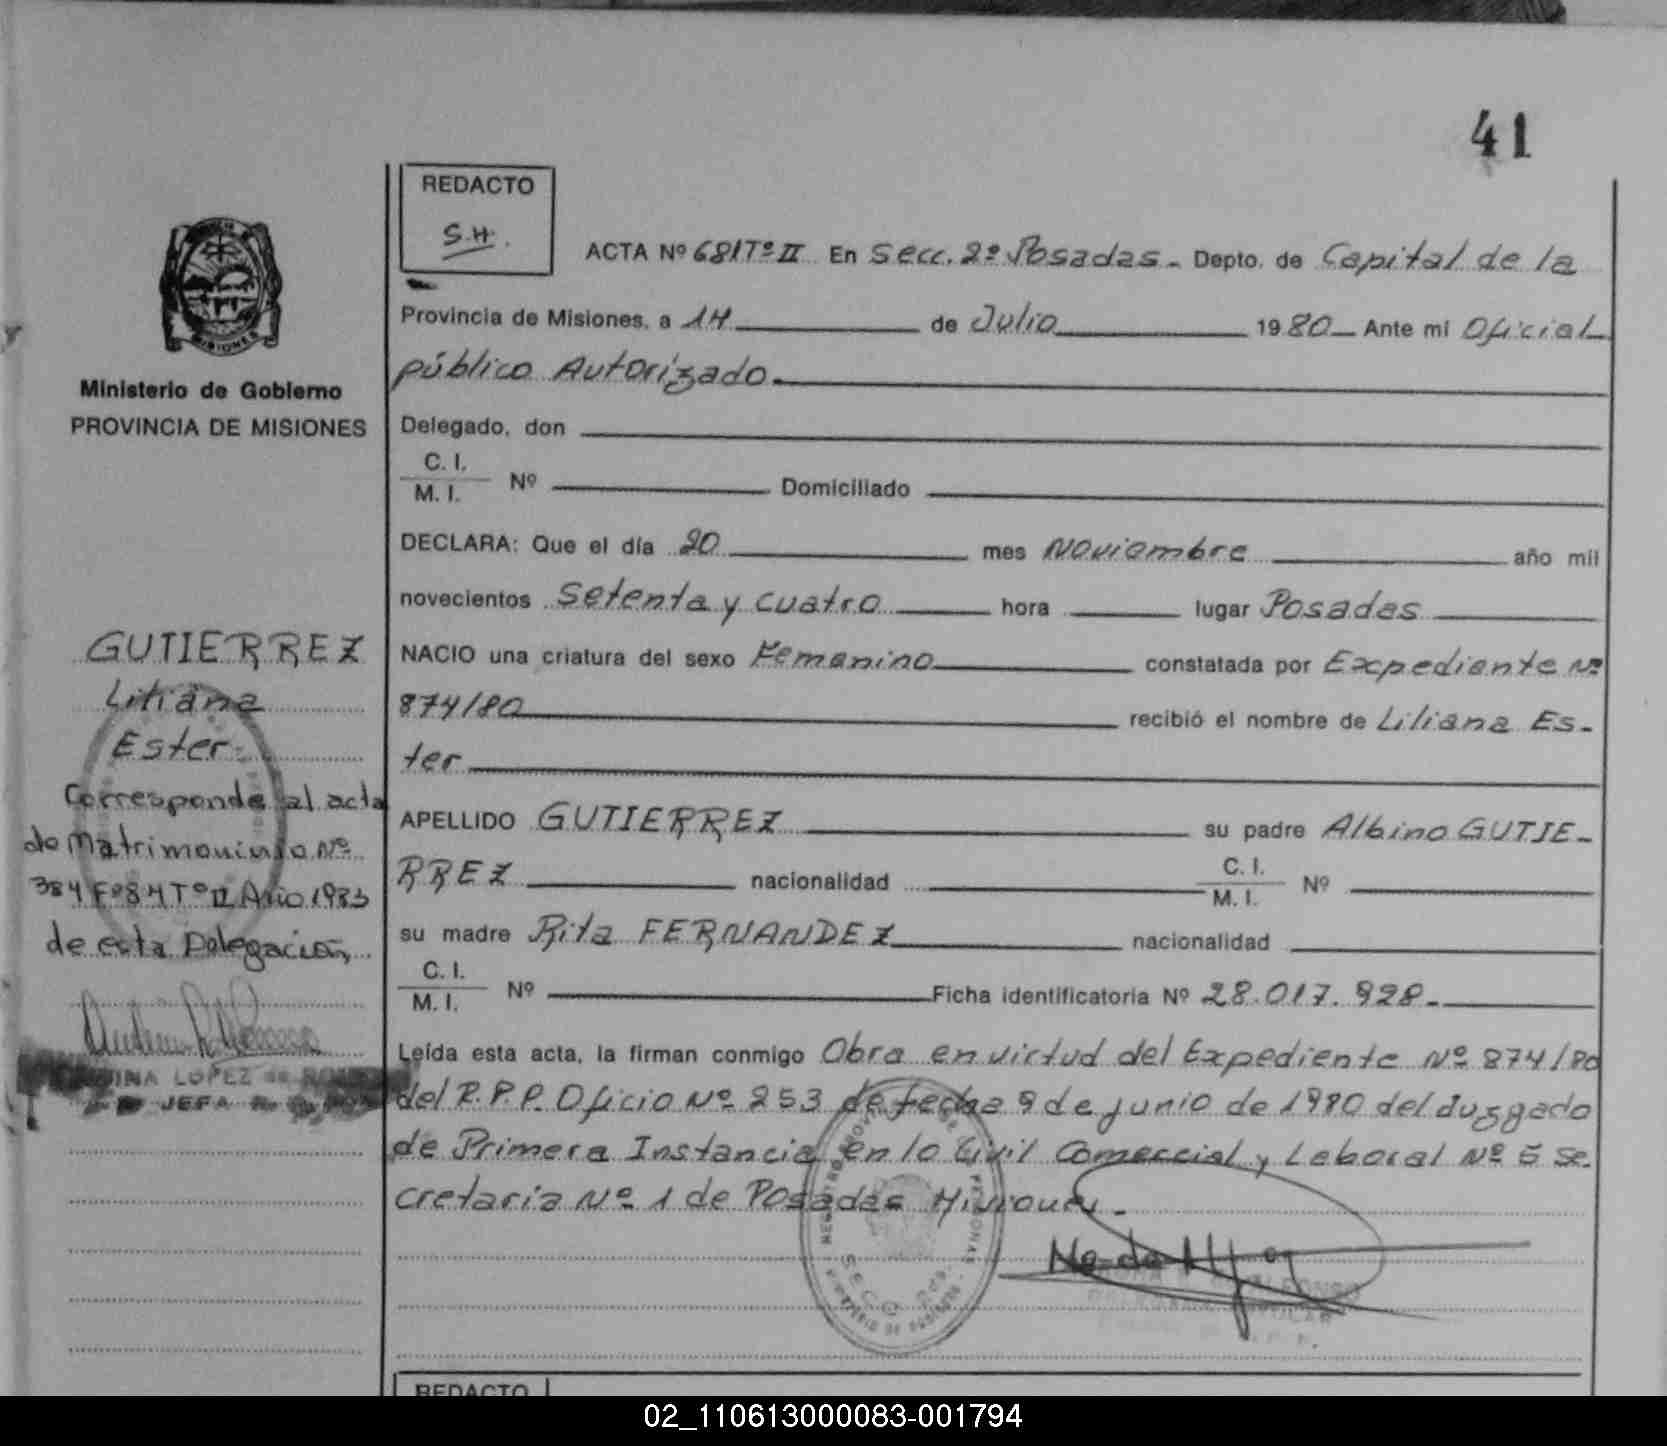 41
REDACTO
S.H.
ACTA Nº 681 Tº II En Secc. 2º Posadas - Depto. de Capital de la
Provincia de Misiones, a 14 de Julio 1980 Ante mi Oficial
público Autorizado.
Delegado, don
C. I.
M. I. Nº Domiciliado
DECLARA: Que el día 20 mes Noviembre año mil
novecientos setenta y cuatro hora lugar Posadas
NACIO una criatura del sexo Femenino constatada por Expediente Nº
874/80 recibió el nombre de Liliana Es-
ter
APELLIDO GUTIERREZ su padre Albino GUTIE-
RREZ nacionalidad C. I. M. I. Nº
su madre Rita FERNANDEZ nacionalidad
C. I.
M. I. Nº Ficha identificatoria Nº 28.017.928.-
Leída esta acta, la firman conmigo Obra en virtud del Expediente Nº 874/80
del R.P.P. Oficio Nº 253 de fecha 9 de junio de 1980 del Juzgado
de Primera Instancia en lo Civil Comercial y Laboral Nº 5 Se-
cretaria Nº 1 de Posadas Misiones.-
MISIONES
Ministerio de Gobierno
PROVINCIA DE MISIONES
GUTIERREZ
Liliana
Ester
Corresponde al acta
de Matrimonio Nº
384 Fº 84 Tº II Año 1983
de esta Delegación
LOPEZ de
JEFA
REDACTO
02_110613000083-001794